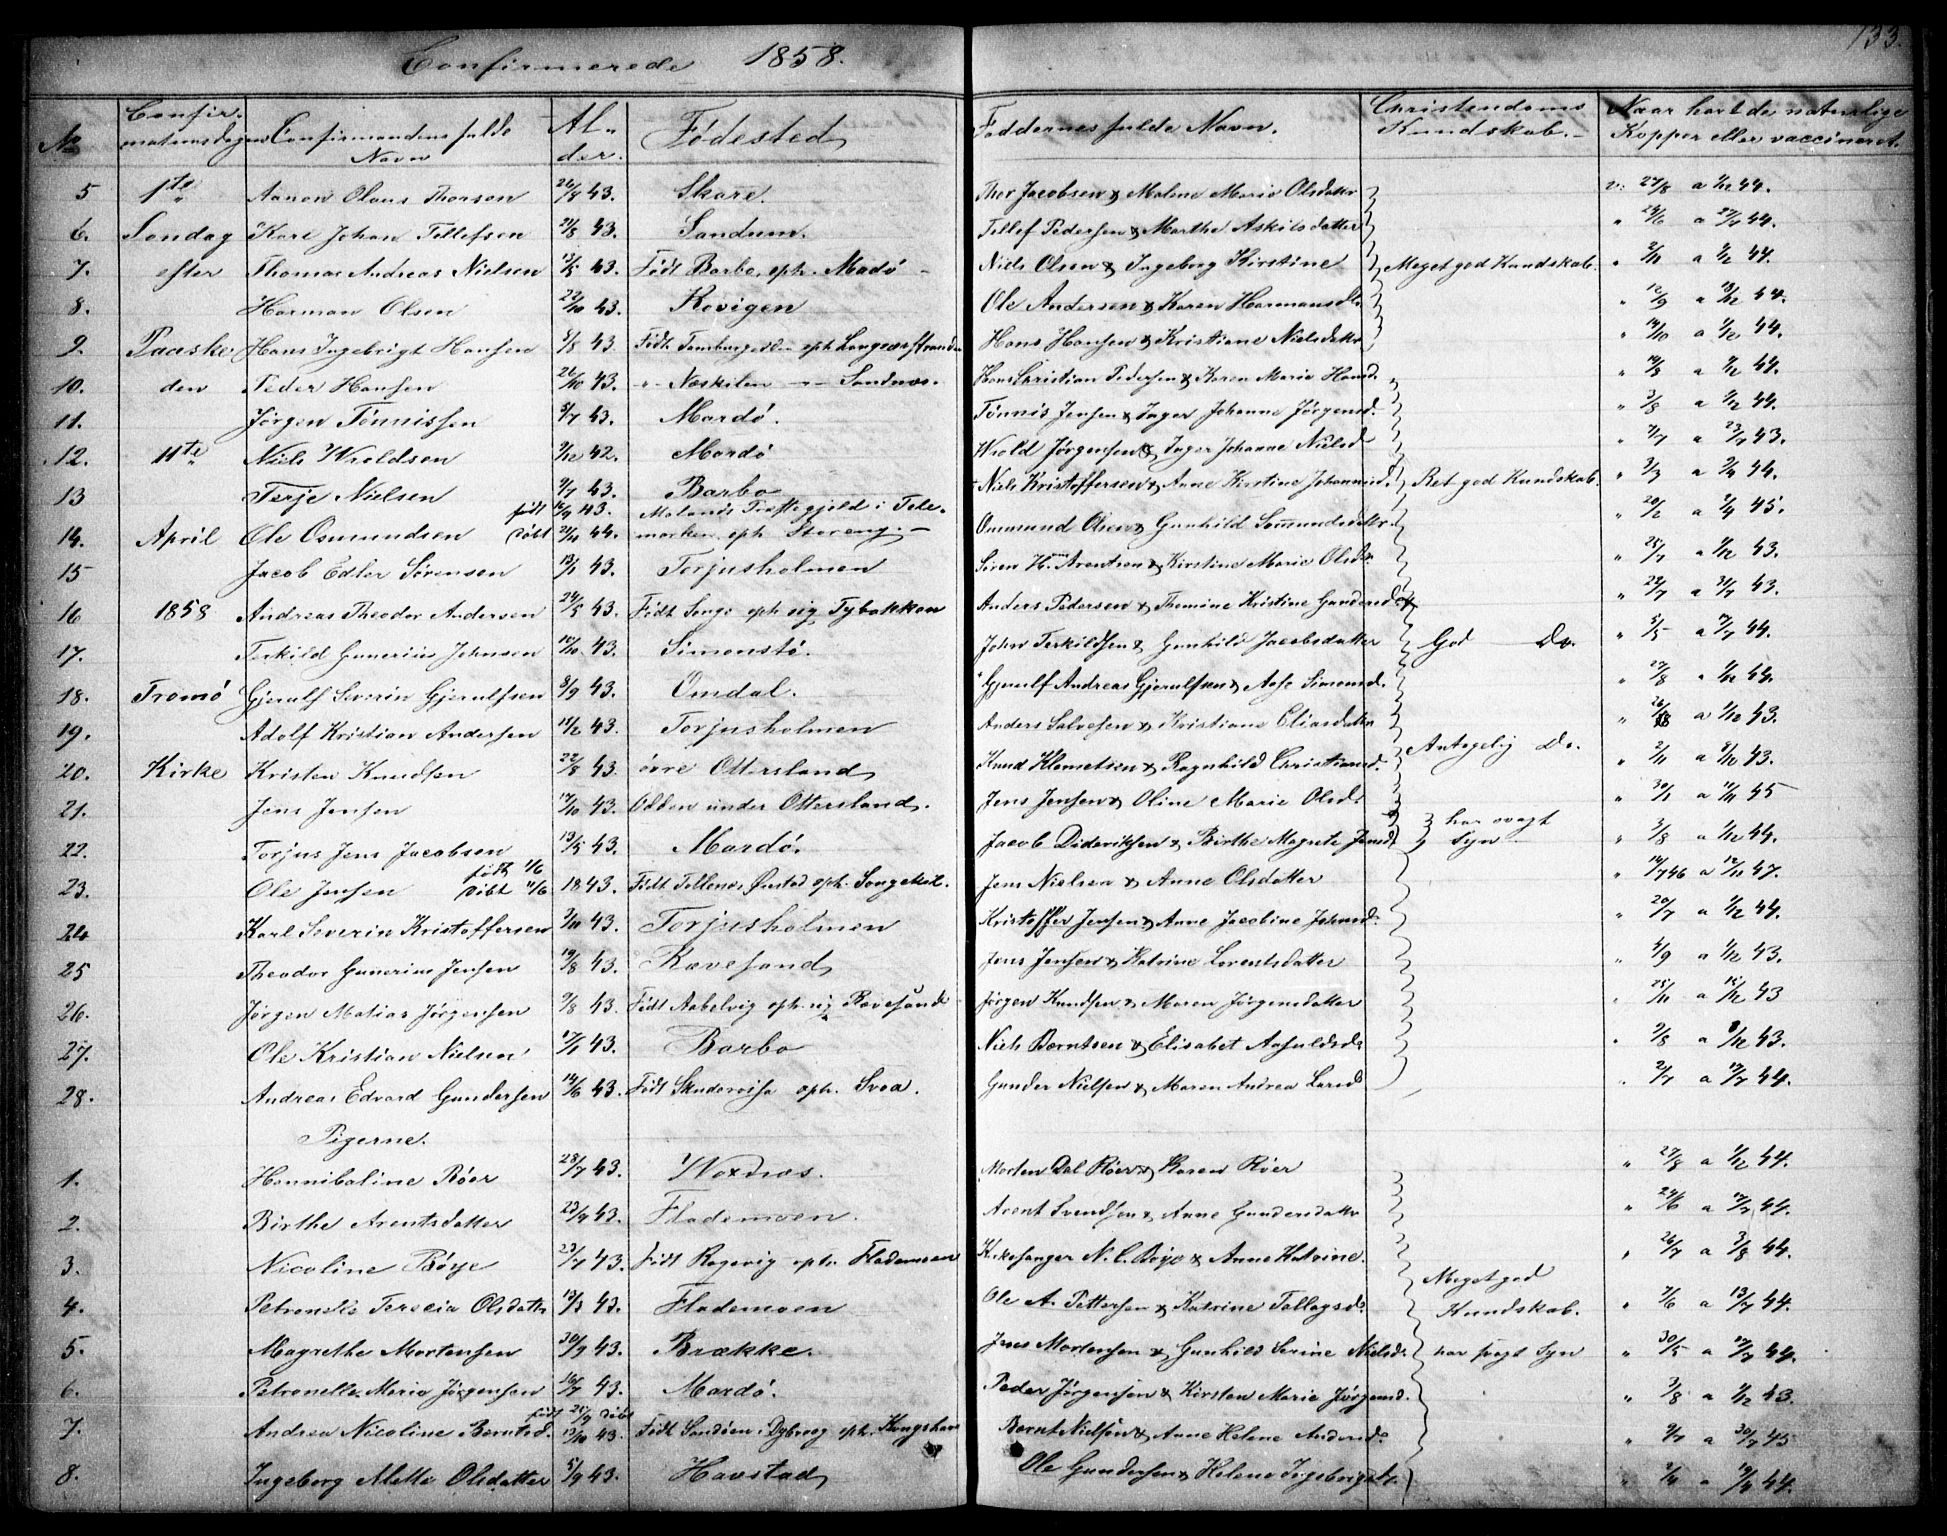 133.
Confirmerede 1858.
No Confirmationsdagen Confirmandens fulde Navn Alder. Fødested Faddernes fulde Navn. Christendoms Kundskab. Naar havt de naturlige Kopper eller vaccineret.
5 1te Aanon Olaus Thorsen 26/8 43. Skare. Thor Jacobsen & Malene Maria Olsdatter v. 27/8 a 1/12 44.
6. Søndag Karl Johan Tellefsen 21/8 43. Sandum. Tellef Pedersen & Marthe Askilsdatter " 24/6 a 27/7 44.
7. efter Thomas Andreas Nielsen 13/5 43. Født Barbo, oph. Madø Niels Olsen & Ingeborg Kirstine Meget god Kundskab. " 2/11 a 1/2 44.
8. Harman Olsen 22/10 43. Revigen Ole Andersen & Karen Harmansd. " 12/9 a 18/12 44.
9. Paaske Hans Ingebrigt Hansen 5/8 43. Født oph. Hans Hansen & Kristiane Nielsdatter " 14/10 a 1/12 44.
10. den Peder Hansen 26/10 43. " Neskilen " Sandnæs. Hans Christian Pedersen & Karen Maria Hansd. " a 1/12 44.
11. Jørgen Tønnissen 5/7 43. Mardø. Tønnis Jensen & Inger Johanne Jørgensd. " 3/8 a 1/12 44.
12. 11te Niels Wroldsen 9/12 42. Mardø Wrold Jørgensen & Inger Johanne Nielsd. " 7/7 a 23/7 43.
13 Terje Nielsen 9/7 43. Barbo Niels Kristoffersen & Anne Kirstine Johannesd. Ret god Kundskab. " 3/3 a 2/4 44.
14. April Ole Osmundsen født 43. døbt 44. Molands Præstegjeld i Telemarken oph. Støreng. Osmund Olsen & Gunhild " 20/2 a 1/4 45.
15 Jacob Edler Sørensen 13/1 43. Torjusholmen Søren H. Arentsen & Kirstine Marie Olsd. " 25/7 a 1/12 43.
16 1858 Andreas Theodor Andersen 24/5 43. Født Songe oph. sig Tybakken Anders Pedersen & Themine Kristine Gundersd. " 22/7 a 31/7 43.
17. Terkild Gunerius Johnsen 10/10 43. Simonstø. John Terkildsen & Gunhild Jacobsdatter God Do. " 3/5 a 9/7 44.
18. Tromø Gjerulf Severin Gjerulfsen 8/9 43. Omdal. Gjerulf Andreas Gjerulfsen & Aase Simonsd. " 27/8 a 1/12 44.
19. Adolf Kristian Andersen 15/2 43. Torjusholmen Anders Salvesen & Kristiane Eliasdatter " a 1/12 43.
20. Kirke Kristen Knudsen 22/8 43. øvre Ottersland Knud Klemetsen & Ragnhild Christiansd. Antagelig Do. " 2/11 a 9/12 43.
21. Jens Jensen 17/10 43. Odden under Ottersland. Jens Jensen & Oline Marie Olsd. " 30/1 a 11/11 45
22. Torjus Jens Jacobsen 13/5 43. Mardø. Jacob Dideriksen & Birthe Magrete Jensd. har svagt Syn " 3/8 a 1/12 44.
23. Ole Jensen født 1/6 døbt 11/6 1843. Født Øiestad oph. Songekil. Jens Nielsen & Anne Olsdatter " 14/7 46 a 12/11 47.
24 Karl Severin Kristoffersen 3/11 43. Torjusholmen Kristoffer Jensen & Anne Jacobine Johnsd. " 20/7 a 1/12 44.
25 Theodor Gunerius Jensen 19/8 43. Ravesand Jens Jensen & Katrine Lorentsdatter " 4/9 a 1/12 43.
26. Jørgen Matias Jørgensen 9/8 43. Født Aabelvig oph. sig Ravesand Jørgen Knudsen & Maren Jørgensdatter " 25/11 a 15/12 43
27. Ole Kristian Nielsen 17/1 43. Barbo Niels Berntsen & Elisabet " 9/8 a 8/12 43.
28. Andreas Edvard Gundersen 14/6 43. Født oph. Svea. Gunder Nielsen & Maren Andrea Larsd. " 2/7 a 17/7 44.
Pigerne.
1. Hannibaline Røer 28/7 43. Woxnæs. Morten Dal Røer & Karen Røer " 27/8 a 1/12 44.
2. Birthe Arentsdatter 23/4 43. Flademoen. Arent Svendsen & Anne Gundersdatter " 24/6 a 17/7 44.
3. Nicoline Bøye 23/7 43. Født Ragevig oph. Flademoen Kirkesanger N. C. Bøye & Anne Katrine. " 26/7 a 3/8 44.
4. Petronelle Terecia Olsdatter 13/3 43. Flademoen Ole A. Pettersen & Katrine Tallagsd. Meget god Kundskab. " 7/6 a 13/7 44.
5. Magrethe Mortensen 30/9 43. Brække. Jens Mortensen & Gunhild Serine Nielsd. har svagt Syn " 30/5 a 17/7 44.
6. Petronelle Maria Jørgensen 16/7 43. Mardø. Peder Jørgensen & Kirsten Marie Jørgensd. " 3/8 a 1/2 43.
7. Andrea Nicoline Berntsd. født 25/9 døbt 13/10 43. Født Sandøen i Dybvog oph. Kongshavn Bernt Nielsen & Anne Helene Andersd. " 9/7 a 30/7 45
8. Ingeborg Mette Olsdatter 5/9 43. Havstad Ole Gundersen & Helene Ingeborgsd. " 2/4 a 19/4 44.